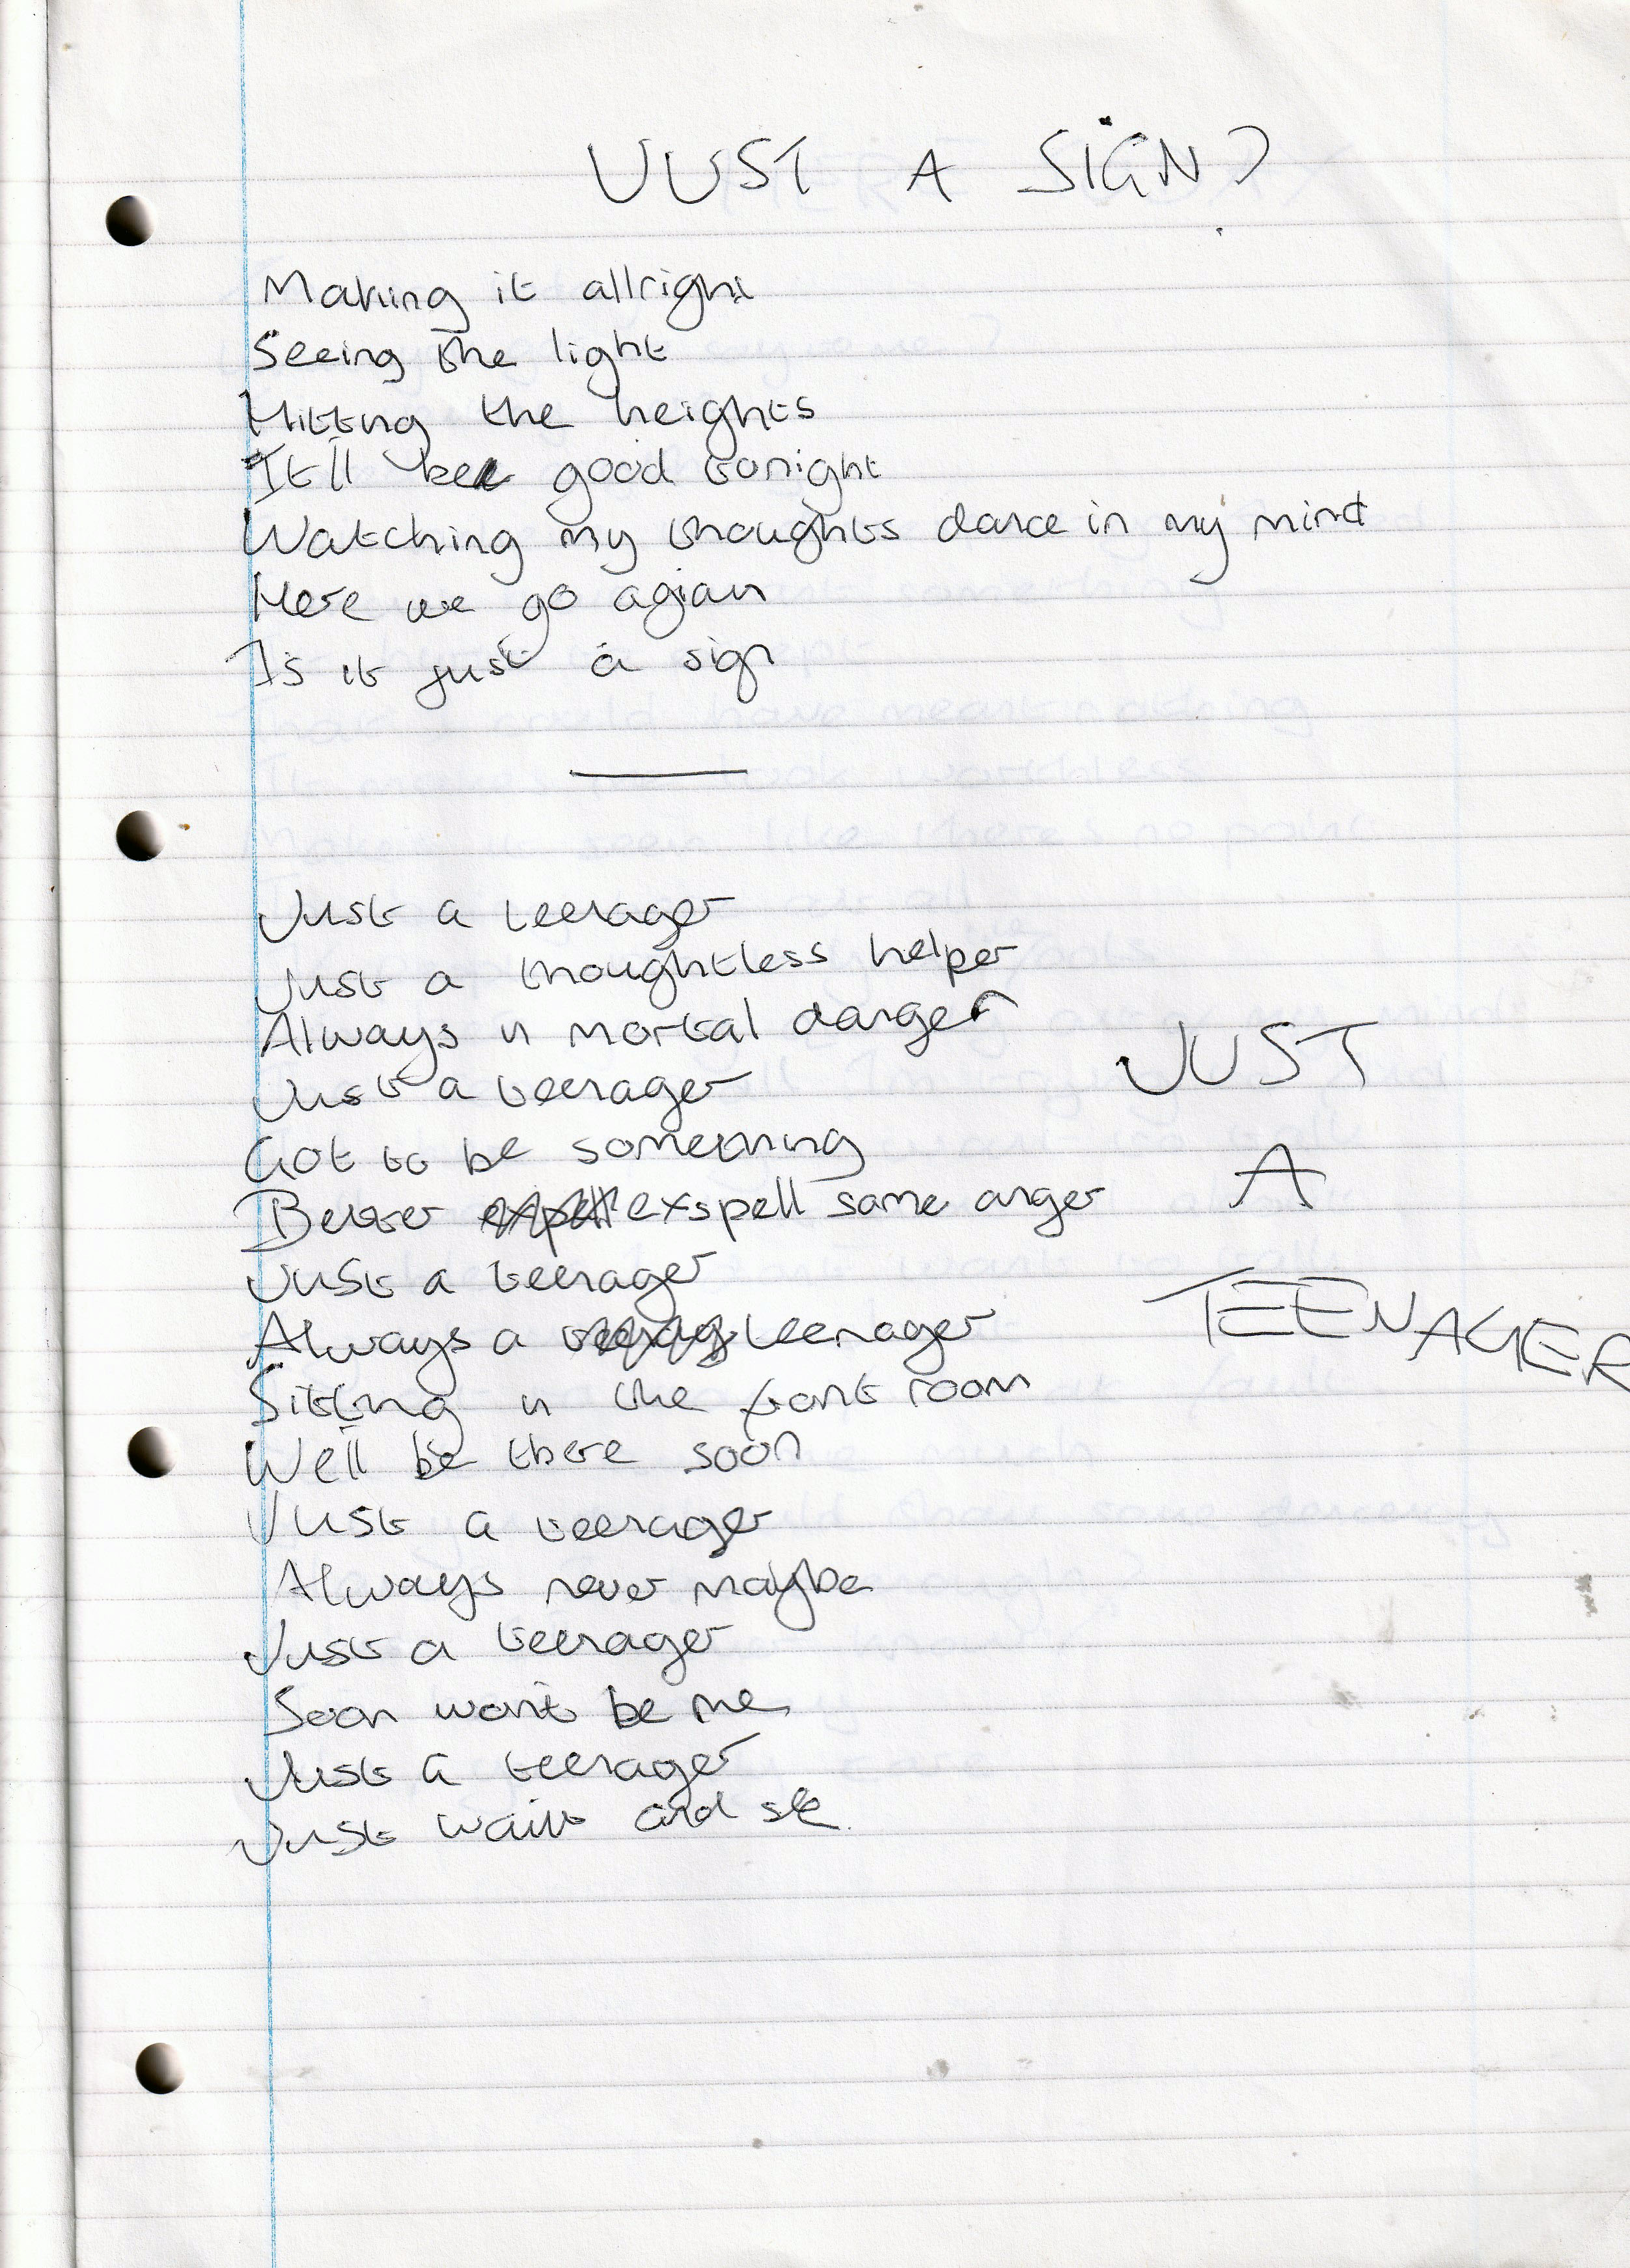 JUST A SIGN?
Making it allright
Seeing the light
Hitting the heights
It'll be good tonight
Watching my thoughts dance in my mind
Here we go agian
Is it just a sign
Just a teenager
Just a thoughtless helper
Always in mortal danger
Just a teenager
Got to be something
Better exspell some anger
Just a teenager
Always a teenager
Sitting in the front room
We'll be there soon
Just a teenager
Always never maybe
Just a teenager
Soon won't be me
Just a teenager
Just wait and see
JUST
A
TEENAGER